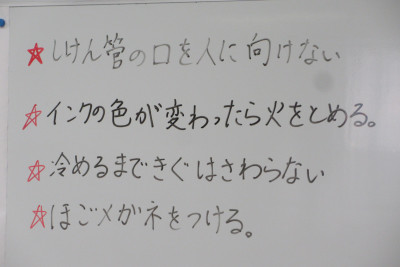 ☆しけん管の口を人に向けない
☆インクの色が変わったら火をとめる。
☆冷めるまできぐはさわらない
☆ほごメガネをつける。